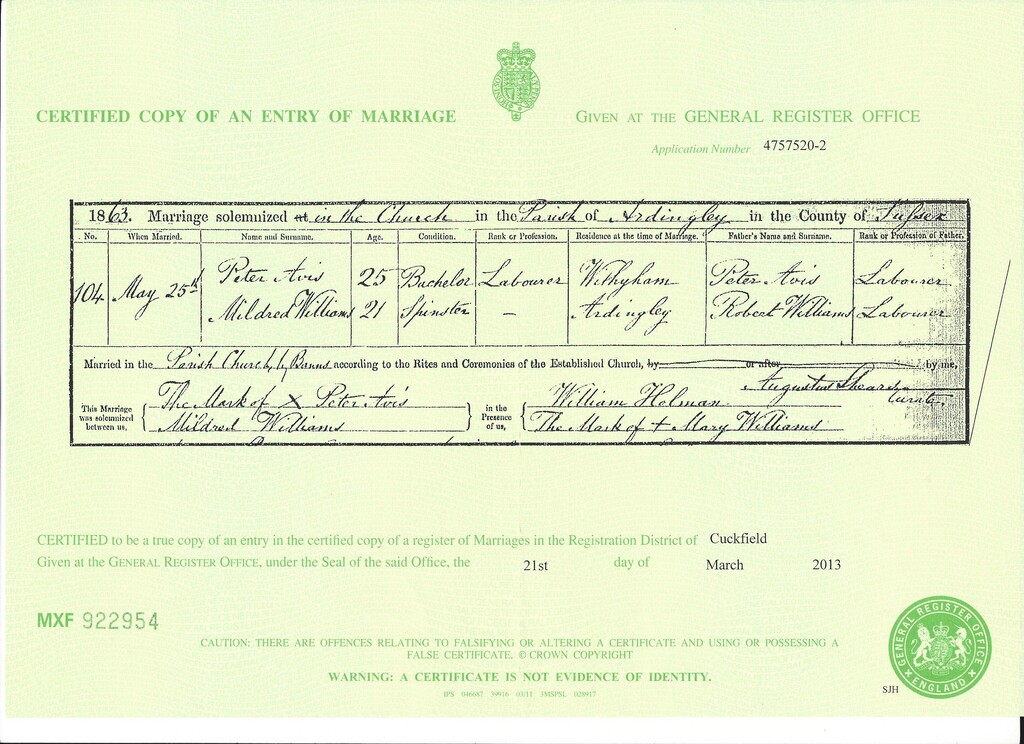 CERTIFIED COPY OF AN ENTRY OF MARRIAGE
GIVEN AT THE GENERAL REGISTER OFFICE
Application Number 4757520-2
1863. Marriage solemnized at in the Church in the Parish of Ardingley in the County of Sussex
No. When Married. Name and Surname. Age. Condition. Rank or Profession. Residence at the time of Marriage. Father's Name and Surname. Rank or Profession of Father.
Peter Avis 25 Bachelor Labourer Withyham Peter Avis Labourer
104 May 25th
Mildred Williams 21 Spinster – Ardingley Robert Williams Labourer
Married in the Parish Church by Banns according to the Rites and Ceremonies of the Established Church, by or after by me,
Augustus Curate.
This Marriage was solemnized between us,
The Mark of X Peter Avis
Mildred Williams
in the Presence of us,
William Holman
The Mark of + Mary Williams
CERTIFIED to be a true copy of an entry in the certified copy of a register of Marriages in the Registration District of Cuckfield
Given at the GENERAL REGISTER OFFICE, under the Seal of the said Office, the 21st day of March 2013
MXF 922954
CAUTION: THERE ARE OFFENCES RELATING TO FALSIFYING OR ALTERING A CERTIFICATE AND USING OR POSSESSING A
FALSE CERTIFICATE. © CROWN COPYRIGHT
WARNING: A CERTIFICATE IS NOT EVIDENCE OF IDENTITY.
IPS 046687 39916 03/11 3MSPSL 028917
GENERAL REGISTER OFFICE
ENGLAND
SJH